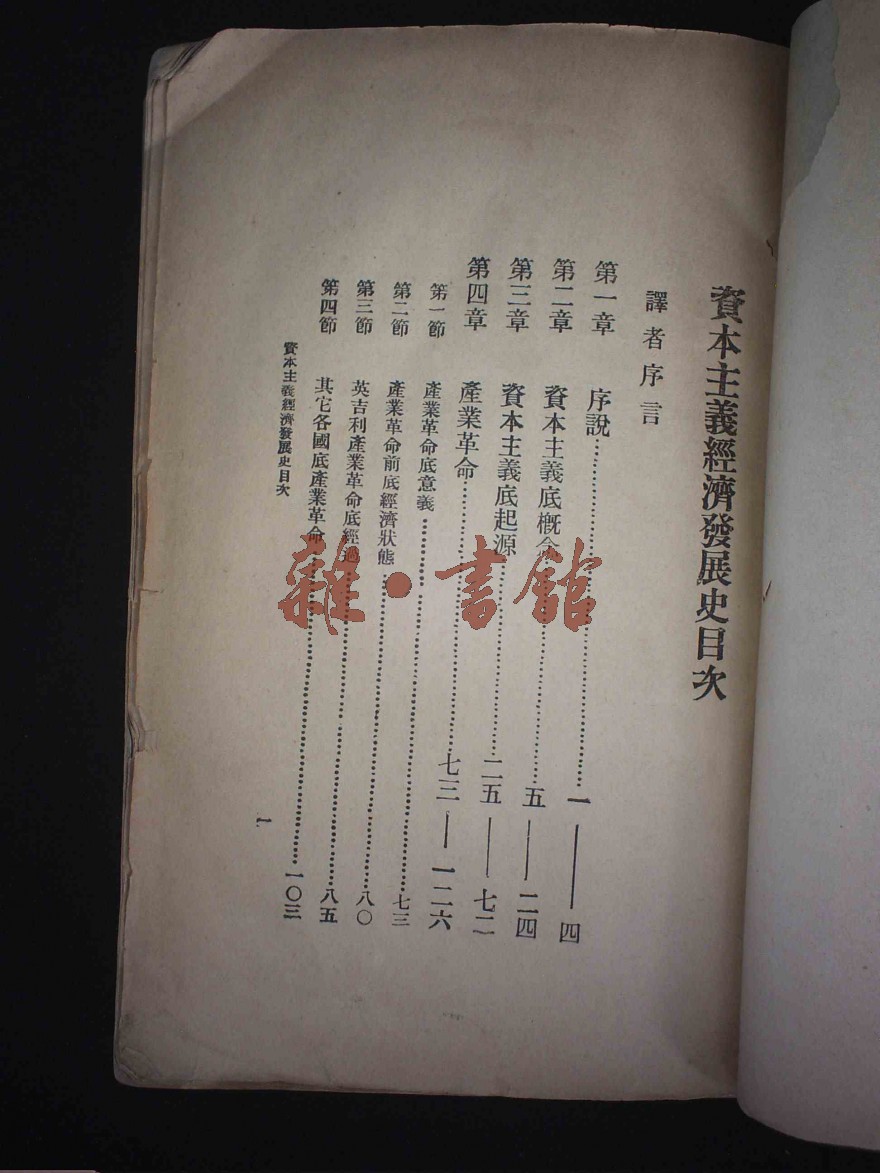 資本主義經濟發展史目次
譯者序言
第一章 序說……一——四
第二章 資本主義底概念……五——二四
第三章 資本主義底起源……二五——七二
第四章 產業革命……七三——一二六
第一節 產業革命底意義……七三
第二節 產業革命前底經濟狀態……八〇
第三節 英吉利產業革命底經過……八五
第四節 其它各國底產業革命……一〇三
資本主義經濟發展史目次
一
雜·書館